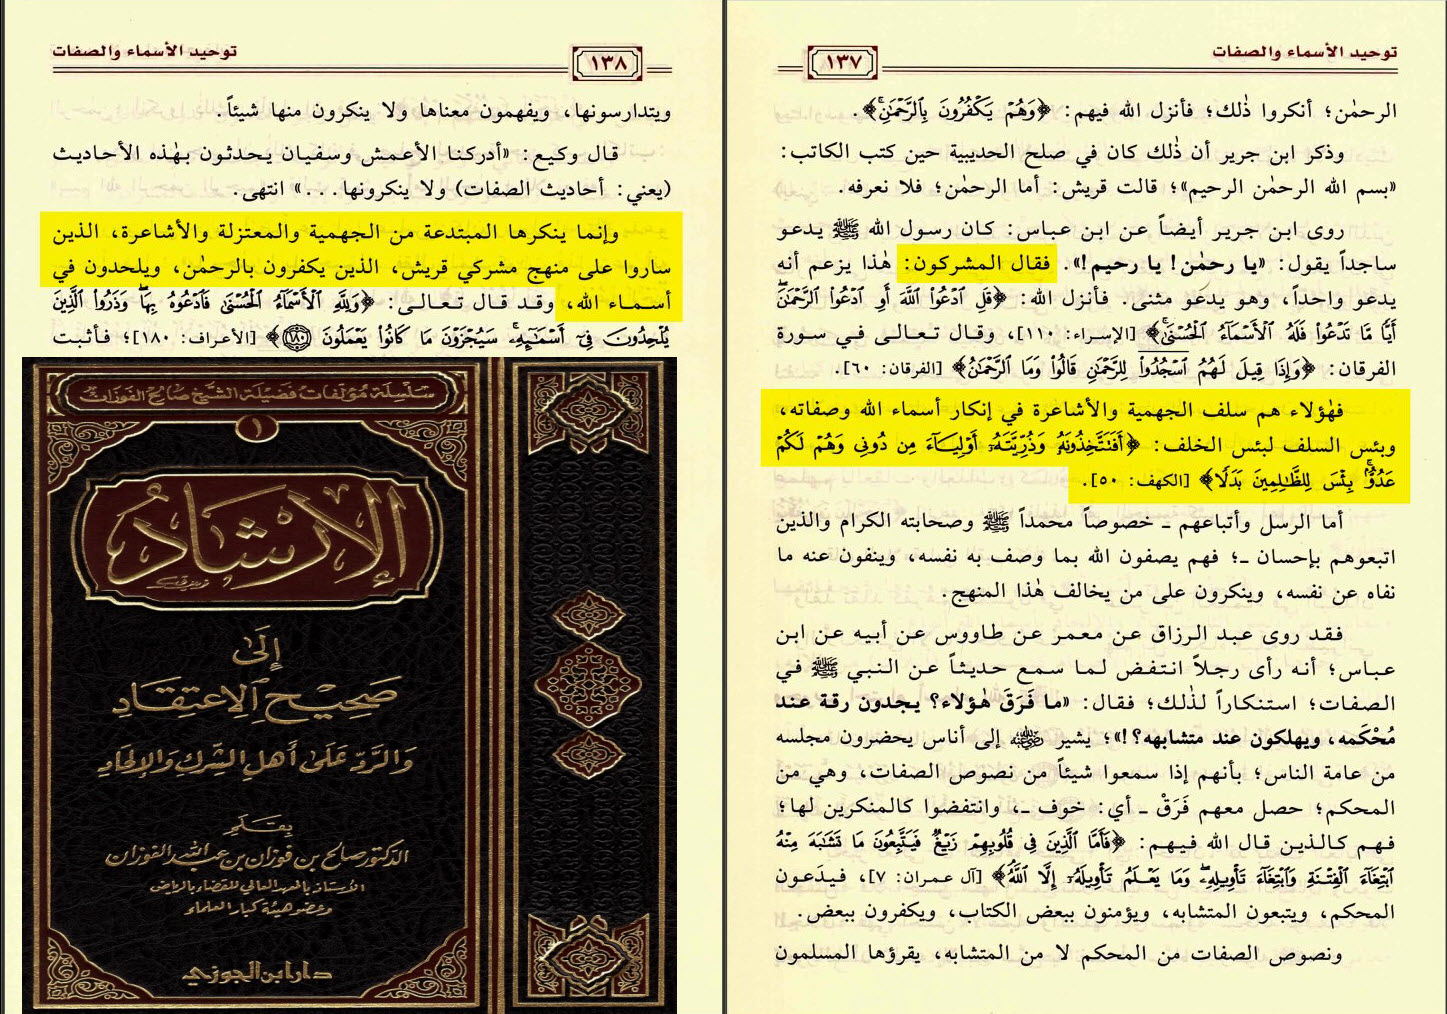 توحيد الأسماء والصفات
١٣٧
الرحمٰن؛ أنكروا ذٰلك؛ فأنزل الله فيهم: ﴿وَهُمْ يَكْفُرُونَ بِالرَّحْمَٰنِ﴾.
وذكر ابن جرير أن ذٰلك كان في صلح الحديبية حين كتب الكاتب:
«بسم الله الرحمٰن الرحيم»؛ قالت قريش: أما الرحمٰن؛ فلا نعرفه.
روى ابن جرير أيضاً عن ابن عباس: كان رسول الله ﷺ يدعو
ساجداً يقول: «يا رحمٰن! يا رحيم!». فقال المشركون: هٰذا يزعم أنه
يدعو واحداً، وهو يدعو مثنى. فأنزل الله: ﴿قُلِ ادْعُوا اللَّهَ أَوِ ادْعُوا الرَّحْمَٰنَ
أَيًّا مَّا تَدْعُوا فَلَهُ الْأَسْمَاءُ الْحُسْنَىٰ﴾ [الإسراء: ١١٠]، وقال تعالى في سورة
الفرقان: ﴿وَإِذَا قِيلَ لَهُمُ اسْجُدُوا لِلرَّحْمَٰنِ قَالُوا وَمَا الرَّحْمَٰنُ﴾ [الفرقان: ٦٠].
فهٰؤلاء هم سلف الجهمية والأشاعرة في إنكار أسماء الله وصفاته،
وبئس السلف لبئس الخلف: ﴿أَفَتَتَّخِذُونَهُ وَذُرِّيَّتَهُ أَوْلِيَاءَ مِن دُونِي وَهُمْ لَكُمْ
عَدُوٌّ بِئْسَ لِلظَّالِمِينَ بَدَلًا﴾ [الكهف: ٥٠].
أما الرسل وأتباعهم ـ خصوصاً محمداً ﷺ وصحابته الكرام والذين
اتبعوهم بإحسان ـ؛ فهم يصفون الله بما وصف به نفسه، وينفون عنه ما
نفاه عن نفسه، وينكرون على من يخالف هٰذا المنهج.
فقد روى عبد الرزاق عن معمر عن طاووس عن أبيه عن ابن
عباس؛ أنه رأى رجلاً انتفض لما سمع حديثاً عن النبي ﷺ في
الصفات؛ استنكاراً لذٰلك؛ فقال: «ما فَرَقَ هٰؤلاء؟ يجدون رقة عند
مُحْكَمه، ويهلكون عند متشابهه؟!»؛ يشير رضي الله عنه إلى أناس يحضرون مجلسه
من عامة الناس؛ بأنهم إذا سمعوا شيئاً من نصوص الصفات، وهي من
المحكم؛ حصل معهم فَرَقْ ـ أي: خوف ـ، وانتفضوا كالمنكرين لها؛
فهم كالذين قال الله فيهم: ﴿فَأَمَّا الَّذِينَ فِي قُلُوبِهِمْ زَيْغٌ فَيَتَّبِعُونَ مَا تَشَابَهَ مِنْهُ
ابْتِغَاءَ الْفِتْنَةِ وَابْتِغَاءَ تَأْوِيلِهِ وَمَا يَعْلَمُ تَأْوِيلَهُ إِلَّا اللَّهُ﴾ [آل عمران: ٧]، فيدَعون
المحكم، ويتبعون المتشابه، ويؤمنون ببعض الكتاب، ويكفرون ببعض.
ونصوص الصفات من المحكم لا من المتشابه، يقرؤها المسلمون
توحيد الأسماء والصفات
١٣٨
ويتدارسونها، ويفهمون معناها ولا ينكرون منها شيئاً.
قال وكيع: «أدركنا الأعمش وسفيان يحدثون بهٰذه الأحاديث
(يعني: أحاديث الصفات) ولا ينكرونها ...» انتهى.
وإنما ينكرها المبتدعة من الجهمية والمعتزلة والأشاعرة، الذين
ساروا على منهج مشركي قريش، الذين يكفرون بالرحمٰن، ويلحدون في
أسماء الله، وقد قال تعالى: ﴿وَلِلَّهِ الْأَسْمَاءُ الْحُسْنَىٰ فَادْعُوهُ بِهَا وَذَرُوا الَّذِينَ
يُلْحِدُونَ فِي أَسْمَائِهِ سَيُجْزَوْنَ مَا كَانُوا يَعْمَلُونَ ١٨٠﴾ [الأعراف: ١٨٠]؛ فأثبت
سلسلة مؤلفات فضيلة الشيخ صالح الفوزان
١
الإرشاد
إلى
صحيح الاعتقاد
والرد على أهل الشرك والإلحاد
بقلم
الدكتور صالح بن فوزان بن عبد الله الفوزان
الأستاذ بالمعهد العالي للقضاء بالرياض
وعضو هيئة كبار العلماء
دار ابن الجوزي